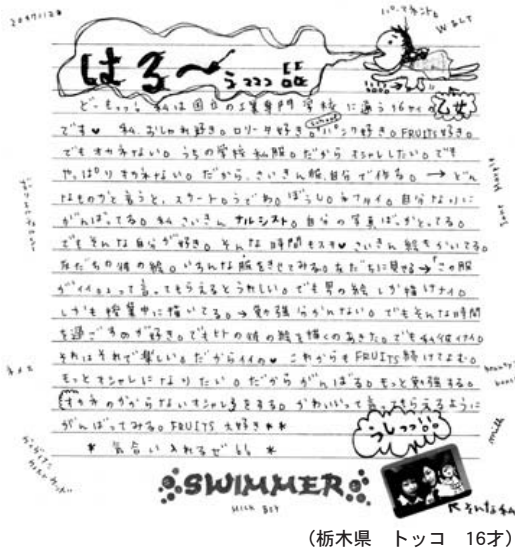 パーマネント
Wあして
はる〜
乙女
どーもっっ! 私は国立の工業専門学校に通う16才の
school
です♥ 私、おしゃれ好き。ロリータ好き。パンク好き。FRUITS好き。
でもオカネない。うちの学校私服。だからオシャレしたい。でも
やっぱりオカネない。だから、さいきん服、自分で作る。→どん
なものかと言うと、スカート。うでわ。ぼうし。ネフルイ。自分なりに
がんばってる。私さいきんナルシスト。自分の写真ばっかとってる。
でもそんな自分が好き。そんな時間もスキ♥ さいきん絵をかいてる。
友だちの彼の絵。いろんな服をきせてみる。友だちに見せる→"この服
がイイ。"って言ってもらえるとうれしい。でも男の絵しか描けナイ。
しかも授業中に描いてる。→勉強分かんない。でもそんな時間
を過ごすのが好き。でもヒトの彼の絵を描くのあきた。でも私彼イナイ。
それはそれで楽しい。だからイイの♥ これからもFRUITS続けてよむ。
もっとオシャレになりたい。だからがんばる。もっと勉強する。
オカネのかからないオシャレもする。かわいいって言ってもらえるように
がんばってみる。FRUITS大好き**
* 気合い入れるぜ!! *
SWIMMER
MILK BOY
milk
そんな私
(栃木県 トッコ 16才)